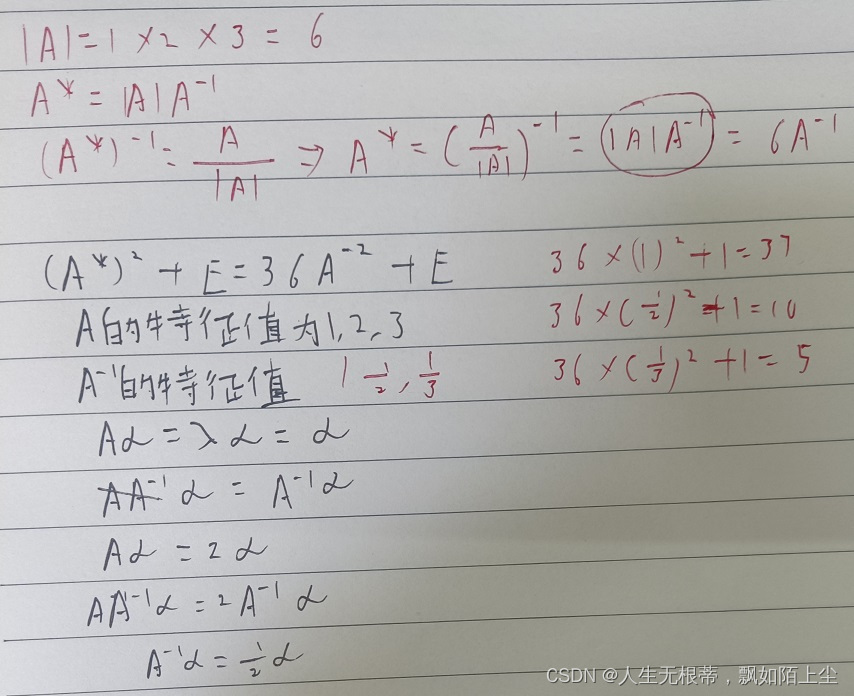 |A|=1×2×3=6
A*=|A|A⁻¹
(A*)⁻¹=A/|A| ⇒ A*=(A/|A|)⁻¹=|A|A⁻¹=6A⁻¹
(A*)²+E=36A⁻²+E 36×(1)²+1=37
A的特征值为1,2,3 36×(1/2)²+1=10
A⁻¹的特征值 1 1/2,1/3 36×(1/3)²+1=5
Aα=λα=α
AA⁻¹α=A⁻¹α
Aα=2α
AA⁻¹α=2A⁻¹α
A⁻¹α=1/2α
CSDN @人生无根蒂，飘如陌上尘